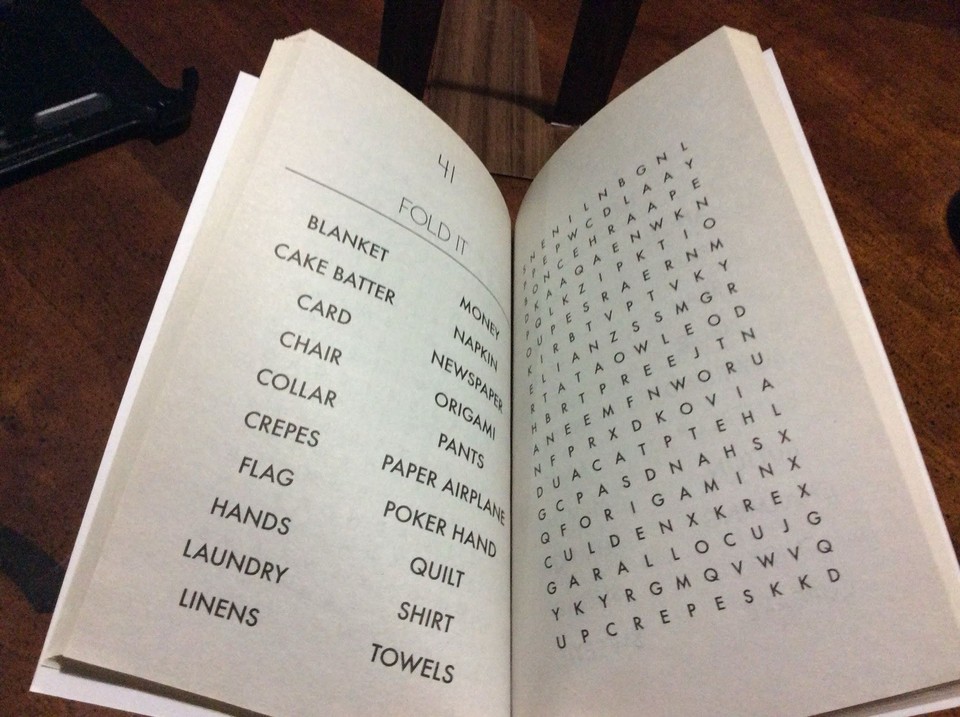 41
FOLD IT
BLANKET
CAKE BATTER
CARD
CHAIR
COLLAR
CREPES
FLAG
HANDS
LAUNDRY
LINENS
MONEY
NAPKIN
NEWSPAPER
ORIGAMI
PANTS
PAPER AIRPLANE
POKER HAND
QUILT
SHIRT
TOWELS
S N E N I L N B G N L
P E P W C D L A A Y
P O N C E H R A A P E
B K A A Q A E N W K N
D Q L K Z I P K T I O
O U P E S R A E R N M
K I R B T V P T V K Y
E L I A N Z S S M G R
R T A T A O W L E O D
H B R T P R E E J T N
A N E E M F N W O R U
N F P R X D K O V I A
D U A C A T P T E H L
G C P A S D N A H S X
Q F O R I G A M I N X
C U L D E N X K R E X
G A R A L L O C U J G
Y K Y R G M Q V W V Q
U P C R E P E S K K D